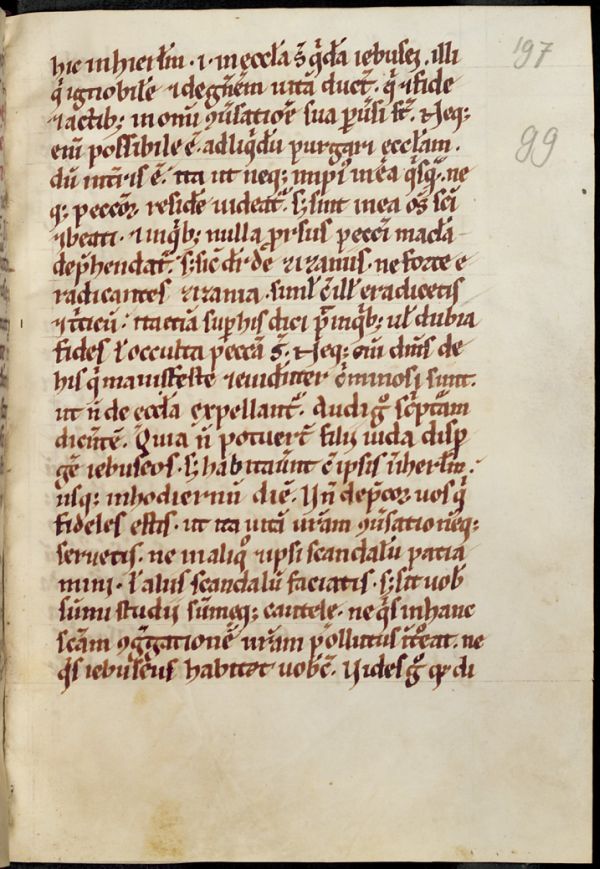 hic in hierłm · i · in ęccła s̄ q̇dā iebusei · illi
q̇ ignobilē ⁊ degn̄em uitā duct̄ · q̇ ⁊ fide
⁊ actib; in om̄i ꝯūsatiōe sua ꝑūsi st̄ · Neq;
eni᷎ possibile ē · ad liqdū purgari ecclam ·
dū int̄ris ē · ita ut neq; impi᷎ in ea q̇sq̇ · ne
q; peccōr residē uideat᷑ · s; sint in ea om̄s sc̄i
⁊ beati · ⁊ in q̇b; nulla prorsus pecc̄i macła
dep̄hendat᷑ · s; sic dr̄ de zizaniis · ne forte e
radicantes zizania · simł c̄ illis eradicetis
⁊ t̄ticū · ita etiā suꝑ his dici p̄t in q̇b; uł dubia
fides ł occulta peccā s̄ · Neq; eni᷎ dicim᷒ de
his q̇ manifeste ⁊ euidēter c̄minosi sunt ·
ut n̄ de eccła expellant᷑ · Audi g̊ sc̄pturam
dicētē · Quia n̄ potuer̄t filii iuda disꝑ
gē iebuseos · s; habitauer̄t c̄ ipsis in hierłm
usq; in hodiernū diē · Un̄ dep̄cor uos q̇
fideles estis · ut ita uitā vr̄am ꝯūsationēq;
seruetis · ne in aliq̊ ⁊ ipsi scandalū patia
mini · ł aliis scandalū faciatis · s; sit uob̄
sūmi studii sūmęq; cautelę · ne q̇s in hanc
sc̄am ꝯgregationē vr̄am pollutus int̊eat · ne
q̇s iebuseus habitet uobc̄ · Uides g̊ qꝫ di
197
99